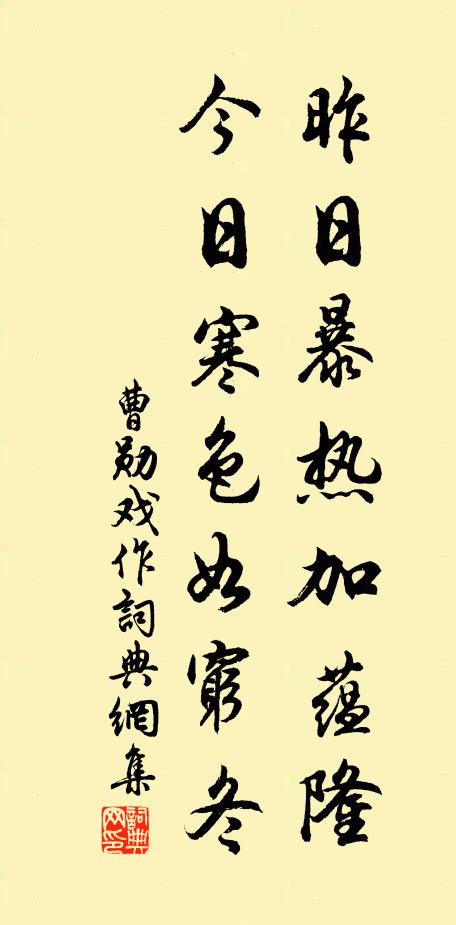 昨日暴热加蕴隆
今日寒色如窮冬
曹勛戏作詞典網集
詞典
网印